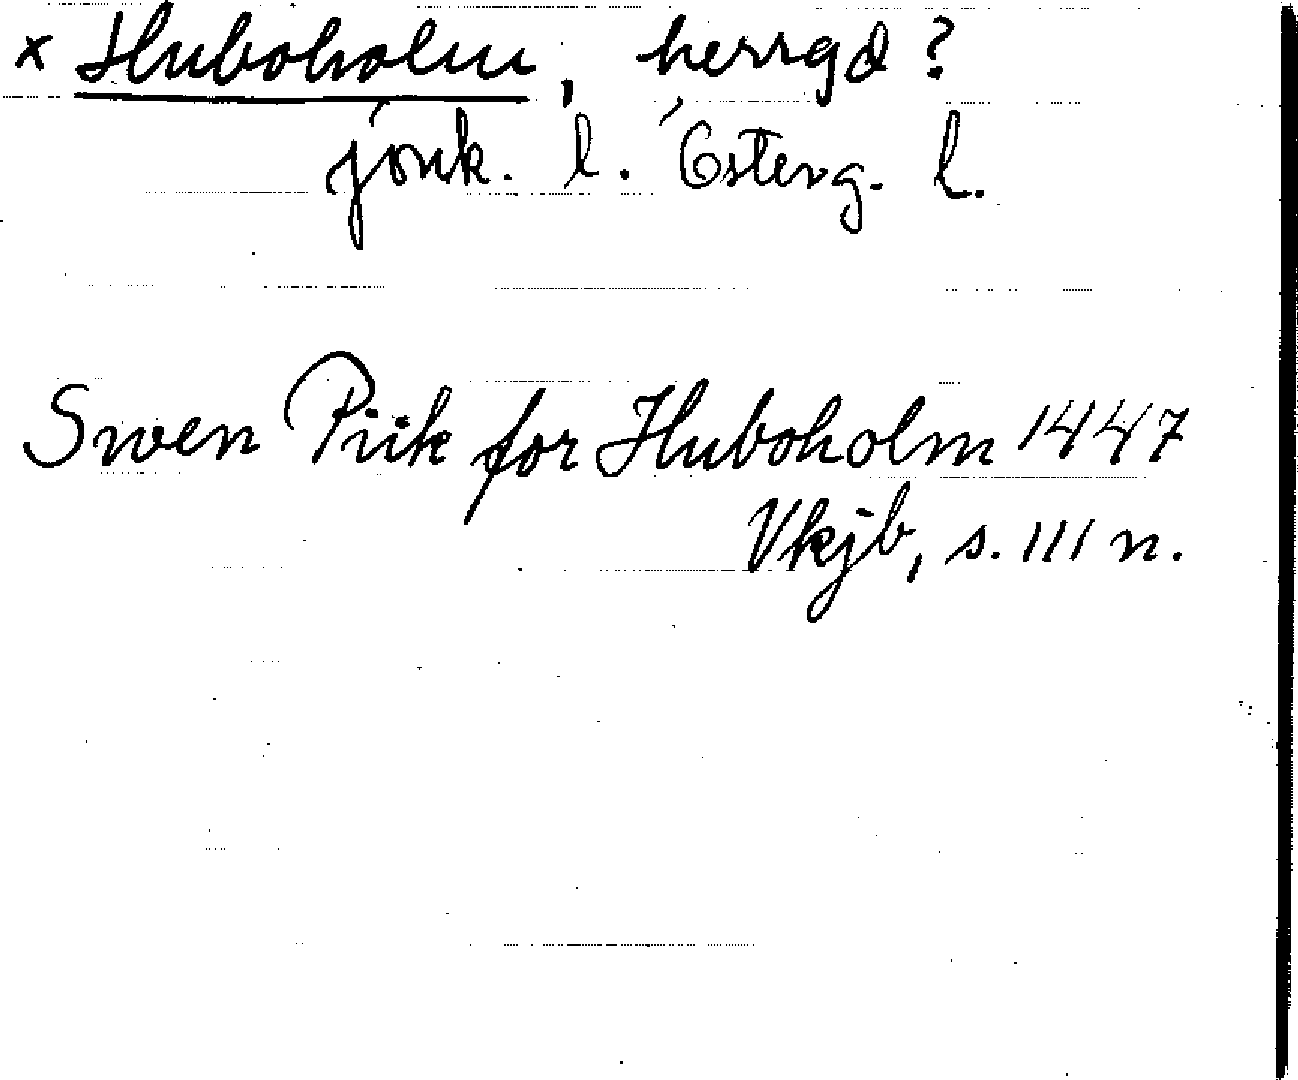 x Huboholm, herrgd?
jönk. l. Österg. l.
Swen Piik for Huboholm 1447
Vkjb, s. 111 n.